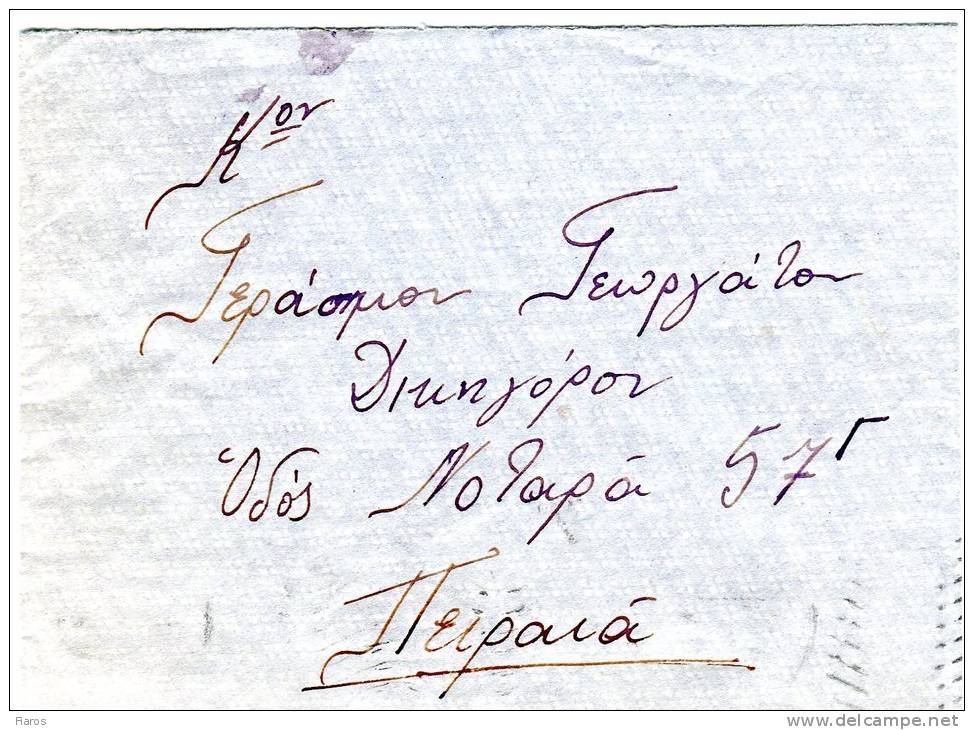 Κον
Γεράσιμον Γεωργάτον
Δικηγόρον
Ὁδός Νοταρᾶ 57Γ
Πειραιᾶ
Raros
delcampe.net